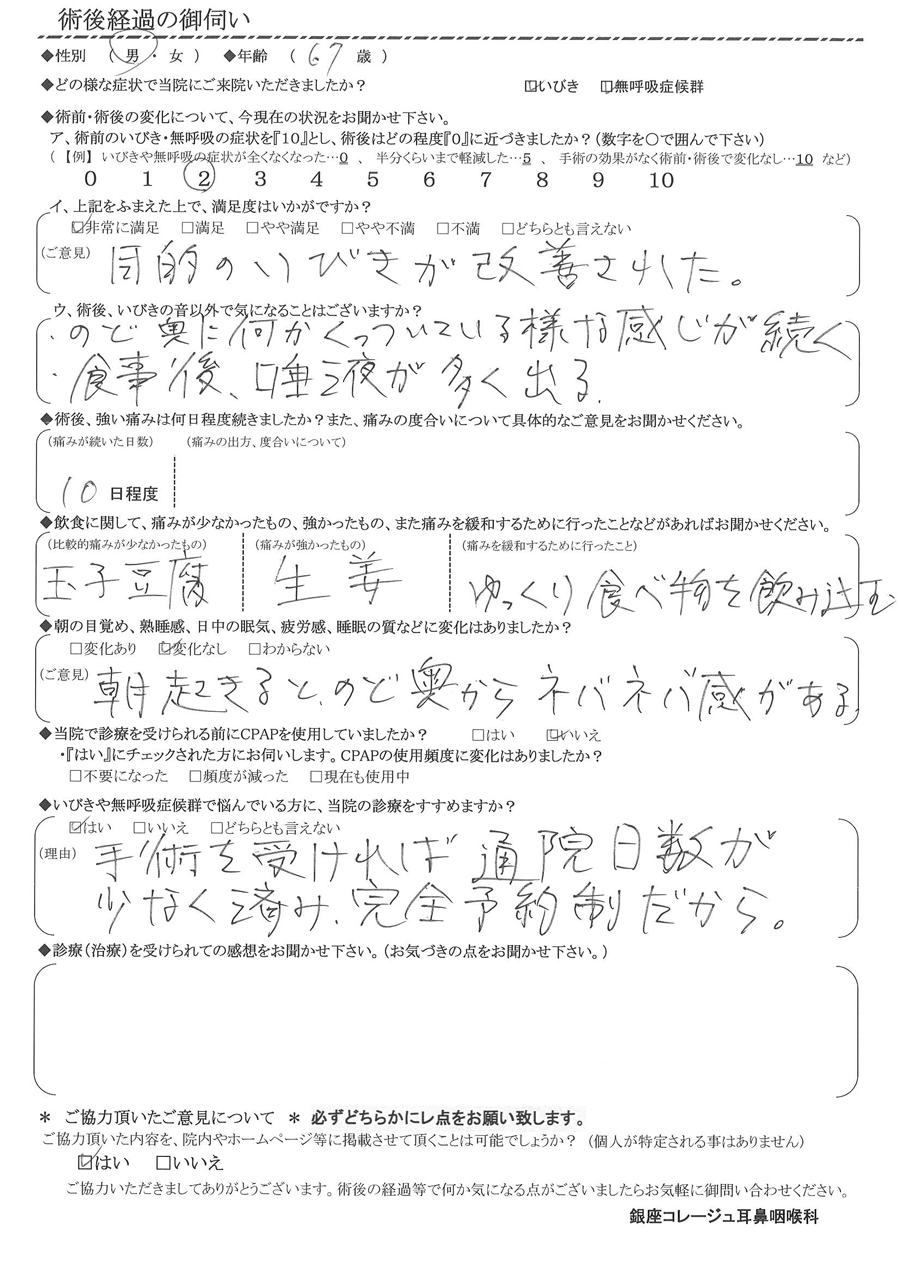 術後経過の御伺い
◆性別 （ 男 ・ 女 ） ◆年齢 （ 67 歳 ）
◆どの様な症状で当院にご来院いただきましたか？ ☑いびき ☑無呼吸症候群
◆術前・術後の変化について、今現在の状況をお聞かせ下さい。
ア、術前のいびき・無呼吸の症状を『10』とし、術後はどの程度『0』に近づきましたか？（数字を〇で囲んで下さい）
（ 【例】 いびきや無呼吸の症状が全くなくなった…0 、 半分くらいまで軽減した…5 、 手術の効果がなく術前・術後で変化なし…10 など）
0 1 2 3 4 5 6 7 8 9 10
イ、上記をふまえた上で、満足度はいかがですか？
☑非常に満足 □満足 □やや満足 □やや不満 □不満 □どちらとも言えない
（ご意見） 目的のいびきが改善された。
ウ、術後、いびきの音以外で気になることはございますか？
・のど奥に何かくっついている様な感じが続く
・食事後、唾液が多く出る.
◆術後、強い痛みは何日程度続きましたか？また、痛みの度合いについて具体的なご意見をお聞かせください。
（痛みが続いた日数） （痛みの出方、度合いについて）
10 日程度
◆飲食に関して、痛みが少なかったもの、強かったもの、また痛みを緩和するために行ったことなどがあればお聞かせください。
（比較的痛みが少なかったもの） （痛みが強かったもの） （痛みを緩和するために行ったこと）
玉子豆腐 生姜 ゆっくり食べ物を飲み込む
◆朝の目覚め、熟睡感、日中の眠気、疲労感、睡眠の質などに変化はありましたか？
□変化あり ☑変化なし □わからない
（ご意見） 朝起きると、のど奥からネバネバ感がある.
◆当院で診療を受けられる前にCPAPを使用していましたか？ □はい ☑いいえ
・『はい』にチェックされた方にお伺いします。CPAPの使用頻度に変化はありましたか？
□不要になった □頻度が減った □現在も使用中
◆いびきや無呼吸症候群で悩んでいる方に、当院の診療をすすめますか？
☑はい □いいえ □どちらとも言えない
（理由） 手術を受ければ通院日数が
少なく済み、完全予約制だから。
◆診療（治療）を受けられての感想をお聞かせ下さい。（お気づきの点をお聞かせ下さい。）
＊ ご協力頂いたご意見について ＊ 必ずどちらかにレ点をお願い致します。
ご協力頂いた内容を、院内やホームページ等に掲載させて頂くことは可能でしょうか？ （個人が特定される事はありません）
☑はい □いいえ
ご協力いただきましてありがとうございます。術後の経過等で何か気になる点がございましたらお気軽に御問い合わせください。
銀座コレージュ耳鼻咽喉科